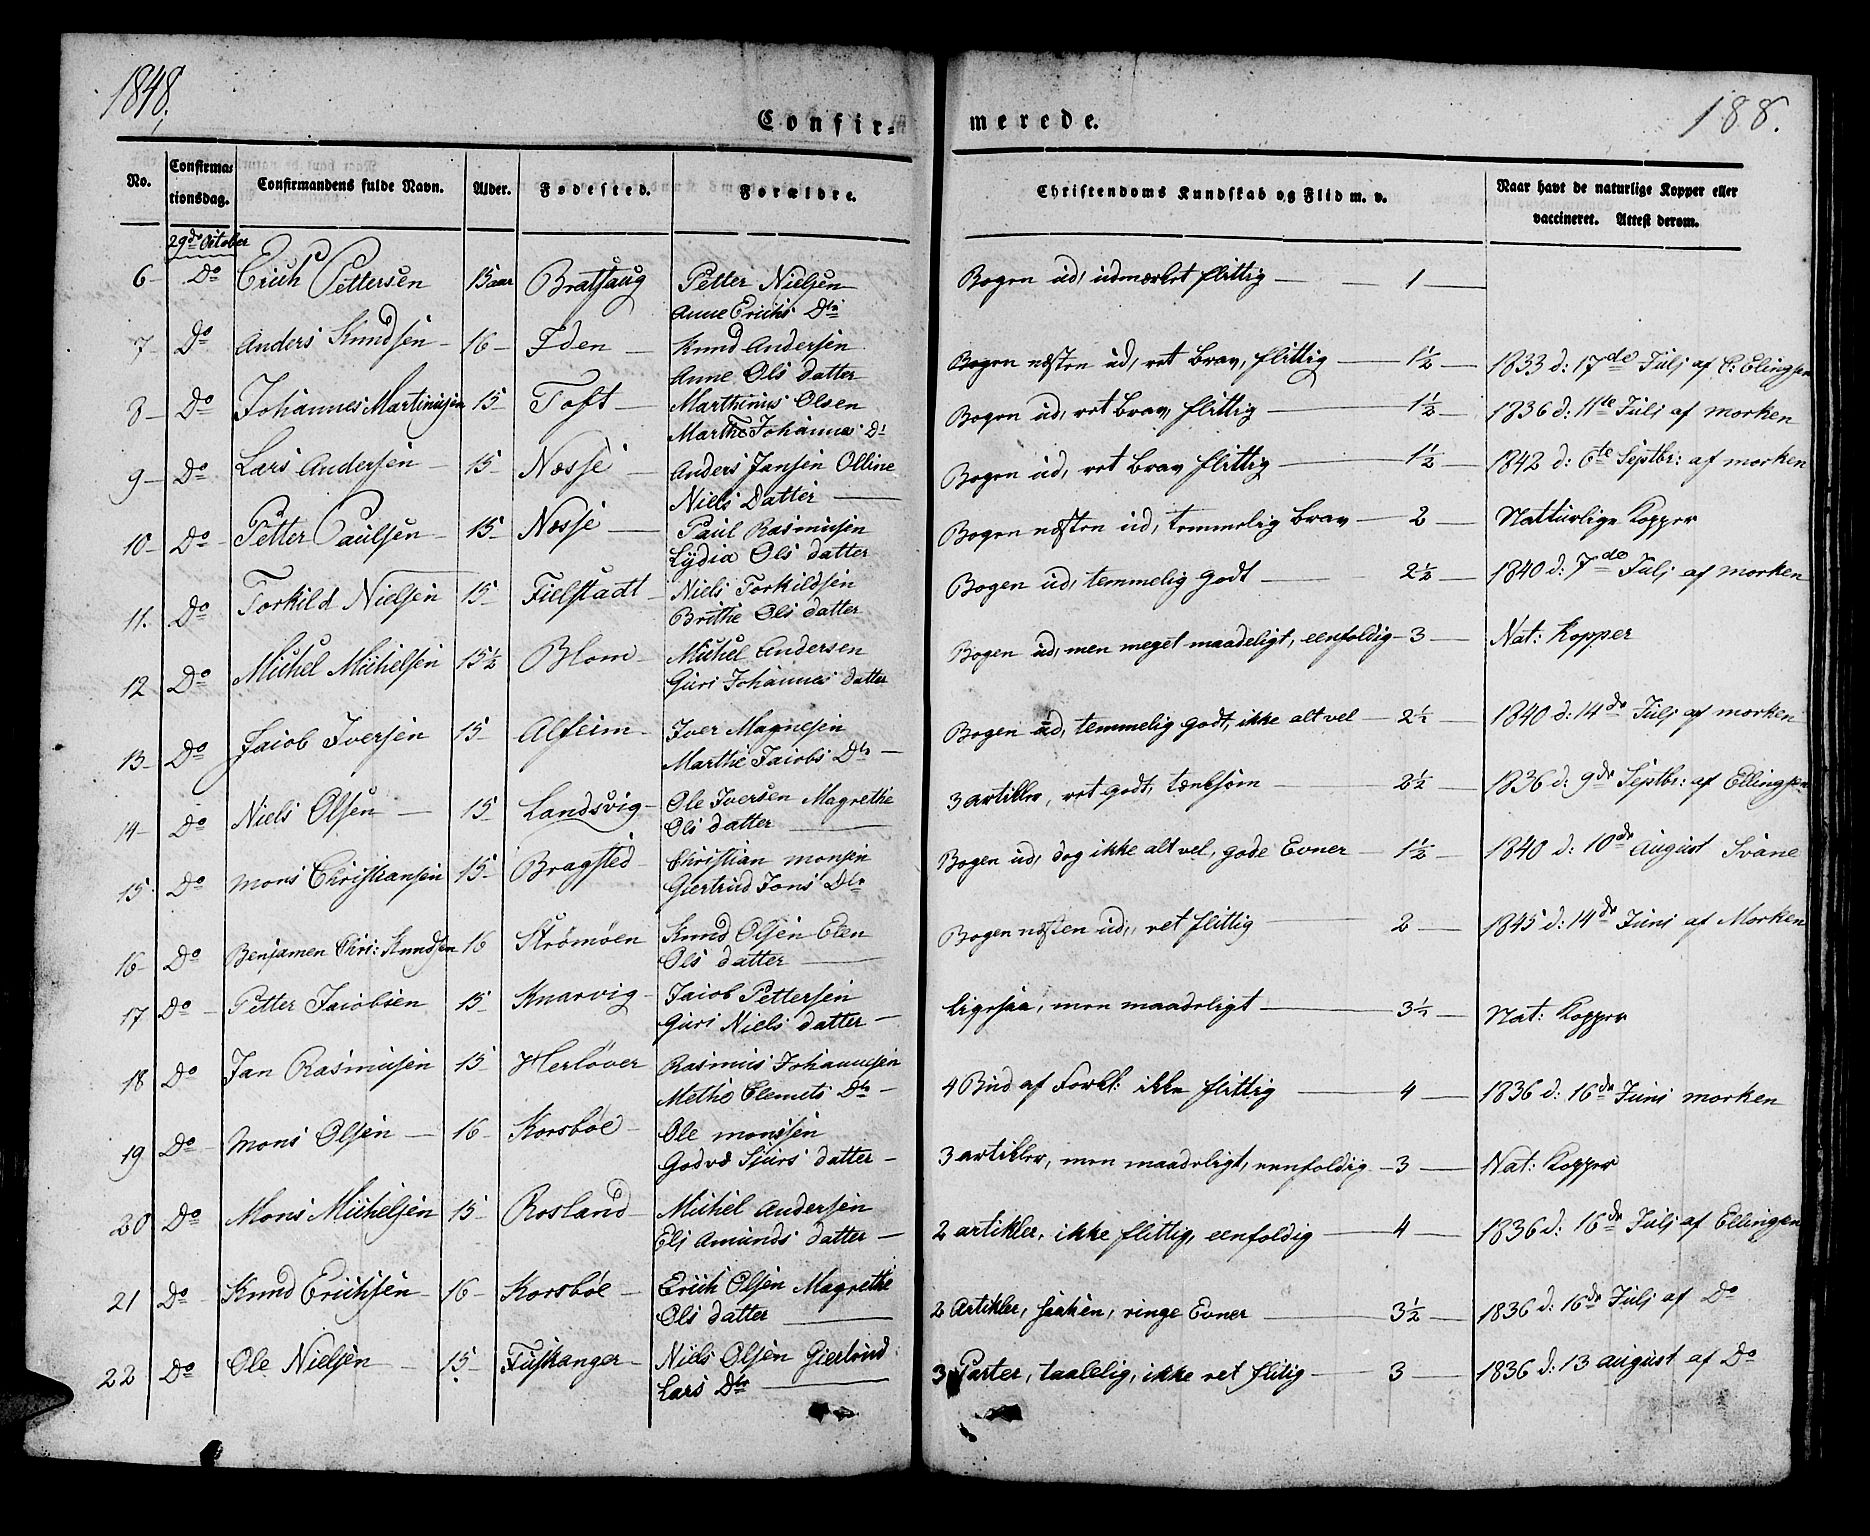 1848, 188.
Confir- merede.
No. Confirmationsdag. Confirmandens fulde Navn. Alder. Fødested. Forældre. Christendoms Kundskab og Flid m. v. Naar havt de naturlige Kopper eller vaccineret. Attest derom.
29de October
6 - Do Erich Pettersen 15 aar Bratsaug Petter Nielsen Bogen ud, udmærket flittig — 1 —
Anne Erichs Dtr
7 - Do Anders Knudsen - 16 - Iden - Knud Andersen Bogen næsten ud, ret brav, flittig — 1½ — 1833 d: 17de Julj af C: Elingsen
Anne Ols datter
8 - Do Johannes Martinusen 15 Toft - Marthinus Olsen Bogen ud, ret brav, flittig — 1½ — 1836 d: 11te Julj af morken
Marthe Johannes Dr
9 - Do Lars Andersen - 15 - Næsse - Anders Jansen Olline Bogen ud, ret brav flittig — 1½ — 1842 d: 6te Septbr: af morken
Niels Datter —
10 - Do Petter Paulsen - 15 - Næsse - Paul Rasmusen Bogen næsten ud, temmelig brav — 2 — Natturlige Kopper
Lydia Ols datter
11. Do Torkild Nielsen 15 - Fielstadt - Niels Torkildsen Bogen ud, temmelig godt — 2½ — 1840 d: 7de Julj af morken
Brithe Ols datter
12 Do Michel Michelsen 15½ Blom - Michel Andersen Bogen ud, men meget maadeligt, eenfoldig - 3 — Nat: Kopper
Guri Johannes datter
13 - Do Jacob Iversen 15 - Alfeim - Iver Magnesen Bogen ud, temmelig godt, ikke alt vel — 2½ — 1840 d: 14de Julj af morken
Marthe Jacobs Dtr —
14 - Do Niels Olsen — 15 Landsvig - Ole Iversen Magrethe 3 artikler, ret godt, tænksom — 2½ — 1836 d: 9de Septbr: af Ellingsen
Ols datter —
15 Do Mons Christiansen 15 - Bragsted - Christian monsen Bogen ud, dog ikke alt vel, gode Evner — 1½ — 1840 d: 10de august Svane
Giertrud Jons Dtr
16 - Do Benjamen Chri: Knudsen 16 Strømøen Knud Olsen Elen Bogen næsten ud, ret flittig — 2 — 1845 d: 14de Juni af Morken
Ols datter —
17 Do - Petter Jacobsen 15 - Knarvig - Jacob Pettersen Ligesaa, men maadeligt — 3½ — Nat: Kopper
Guri Niels datter —
18 Do - Jan Rasmusen 15 - Herløver Rasmus Johannesen 4 Bud af Forkl: ikke flittig — 4 — 1836 d: 16de Juni morken
Methe Clemets Dtr —
19 Do - Mons Olsen — 16 - Korsbøe - Ole monssen 3 artikler, men maadeligt, eenfoldig - 3 — Nat: Kopper
Sjurs datter —
20 Do - Mons Michelsen 15 - Rosland - Michel Andersen 2 artikler, ikke flittig, eenfoldig — 4 — 1836 d: 16de Julj af Ellingsen
Eli Amunds datter —
21 Do - Knud Erichsen - 16 - Korsbøe - Erich Olsen Magrethe 2 Artikler, ringe Evner — 3½ — 1836 d: 16de Julj af Do
Ols datter —
22 Do - Ole Nielsen - 15 - Fuskanger - Niels Olsen 3 Parter, taalelig, ikke ret flitig — 3 — 1836 d: 13 august af Do
Lars Dtr —